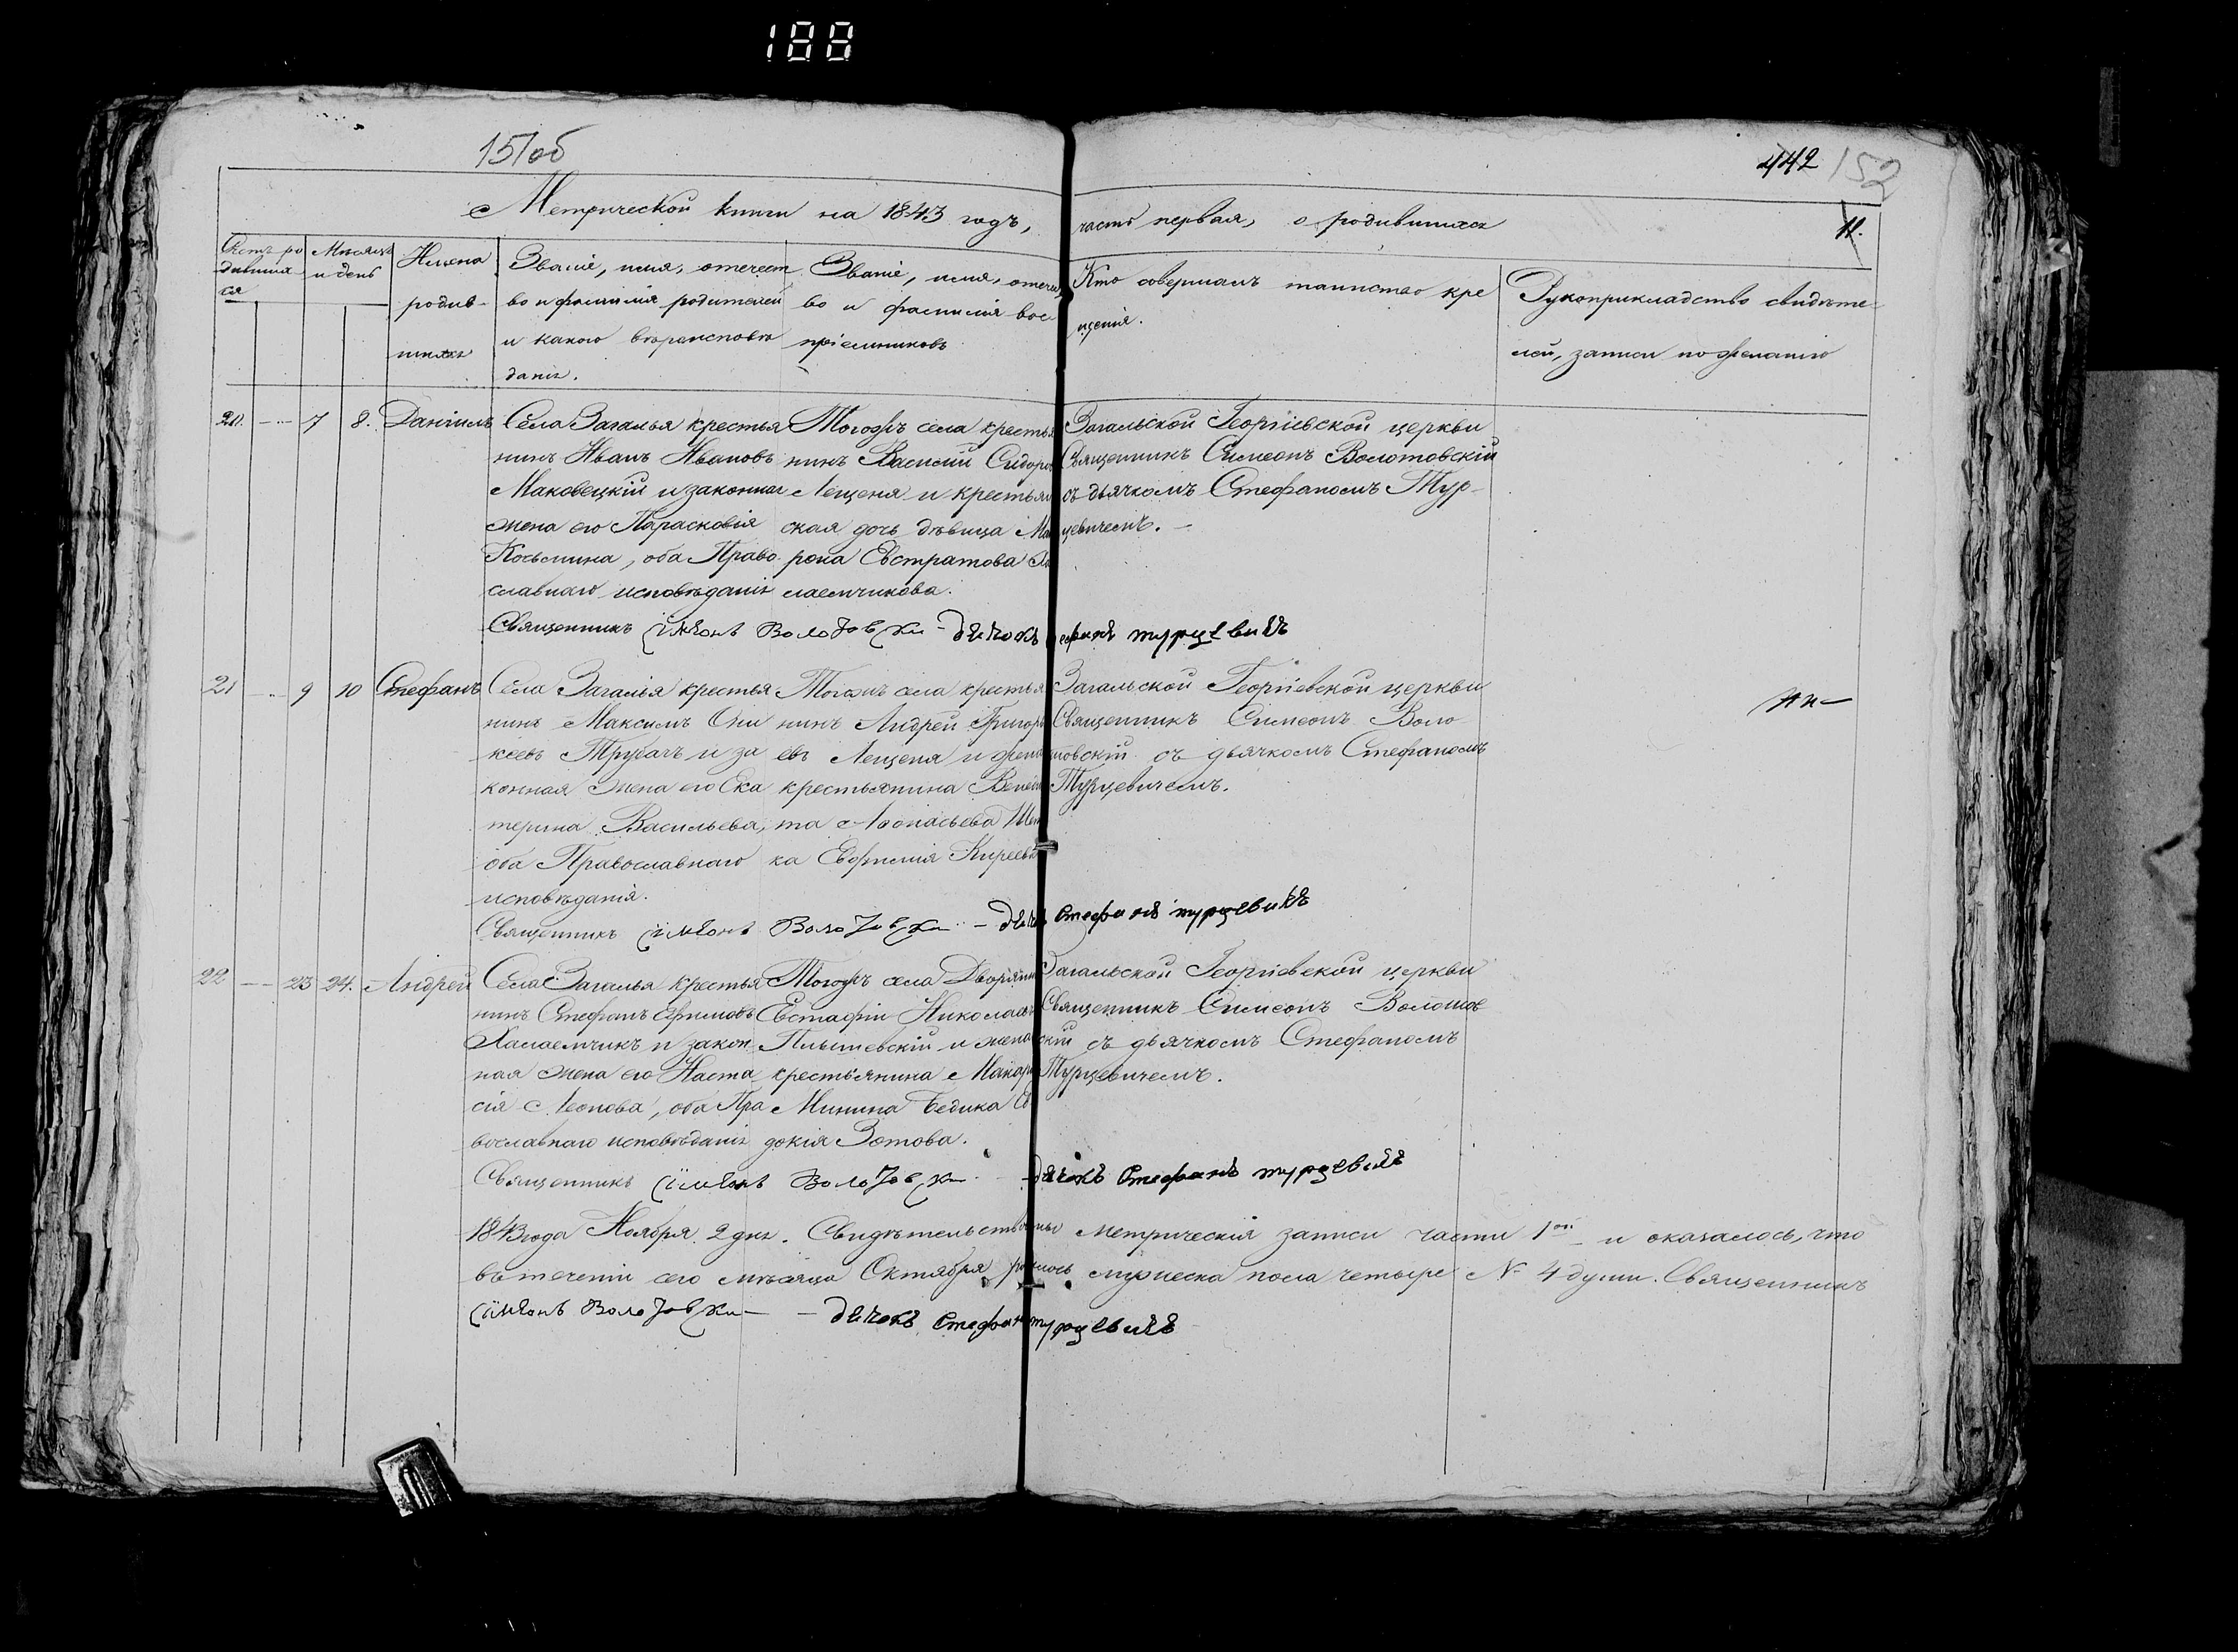 188
151об
442 152
Метрической книги на 1843 годъ, часть первая, о родившихся 11.
Счетъ ро
дивших
ся
Мѣсяцъ
и день
Имена
родив-
шихся
Званіе, имя, отечест
во и фамилія родителей
и какого вѣроисповѣ
данія.
Званіе, имя, отечес
во и фамилія вос
пріемниковъ
Кто совершалъ таинство кре
щенія.
Рукоприкладство свидѣте-
лей, записи по желанію
20. 7 8. Даніилъ
Села Загалья крестья
нинъ Иванъ Ивановъ
Маковецкій и законная
жена его Парасковія
Козьмина, оба Право
славнаго исповѣданія
Тогожъ села крестья
нинъ Василій Сидоро
Лещеня и крестьян
ская дочь дѣвица Ма
рона Евстратова Ха
лаемчикова.
Загальской Георгіевской церкви
Священникъ Симеонъ Волотовскій
съ дьячкомъ Стефаномъ Тур-
цевичемъ.
Священникъ Сімеонъ Волотовски - дьячокъ Стефанъ турцевичъ
21 9 10 Стефанъ
Села Загалья крестья
нинъ Максимъ Они
кеевъ Трубачъ и за
конная жена его Ека
терина Васильева,
оба Православнаго
исповѣданія.
Тогожъ села крестья
нинъ Андрей Григорь
евъ Лещеня и жена
крестьянина Венеди
та Аѳонасьева
ка Евфимія Киреева
Загальской Георгіевской церкви
Священникъ Симеонъ Воло
товскій съ дьячкомъ Стефаномъ
Турцевичемъ.
Священникъ Сімеонъ Волотовски - дьячокъ Стефанъ турцевичъ
22 23 24. Андрей
Села Загалья крестья
нинъ Стефанъ Ефимовъ
Халаемчикъ и закон
ная жена его Наста
сія Леонова, оба Пра
вославнаго исповѣданія
Тогожъ села Дворянин
Евстафій Николаевъ
Плышевскій и жена
крестьянина Макара
Минина Бедика Ев
докія Зотова.
Загальской Георгіевской церкви
Священникъ Симеонъ Волотов
скій съ дьячкомъ Стефаномъ
Турцевичемъ.
Священникъ Сімеонъ Волотовски - дьячокъ Стефанъ турцевичъ
1843 года Ноября 2 дня. Свидѣтельствованы метрическія записи части 1ой и оказалось, что
въ теченіи сего мѣсяца Октября родилось мужеска пола четыре № 4 души. Священникъ
Сімеонъ Волотовски - дьячокъ Стефанъ турцевичъ